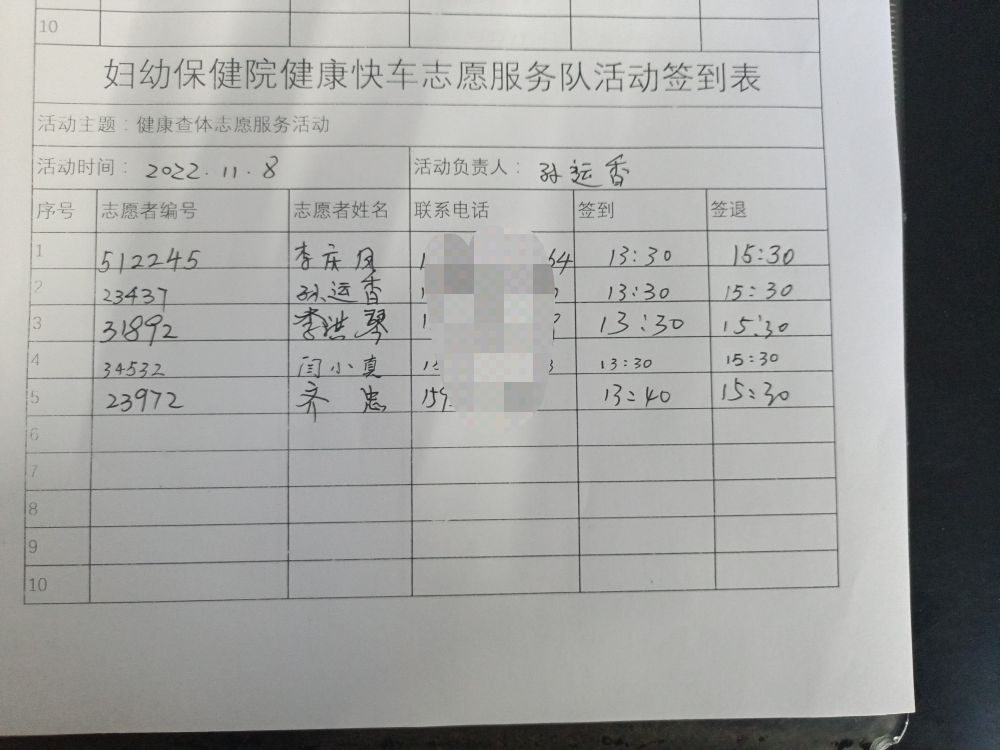 10
妇幼保健院健康快车志愿服务队活动签到表
活动主题：健康查体志愿服务活动
活动时间：2022.11.8 活动负责人：孙运香
序号 志愿者编号 志愿者姓名 联系电话 签到 签退
1 512245 李庆凤 1 64 13:30 15:30
2 23437 孙运香 13:30 15:30
3 31892 李洪琴 1 13:30 15:30
4 34532 闫小真 15 3 13:30 15:30
5 23972 齐忠 159 13:40 15:30
6
7
8
9
10